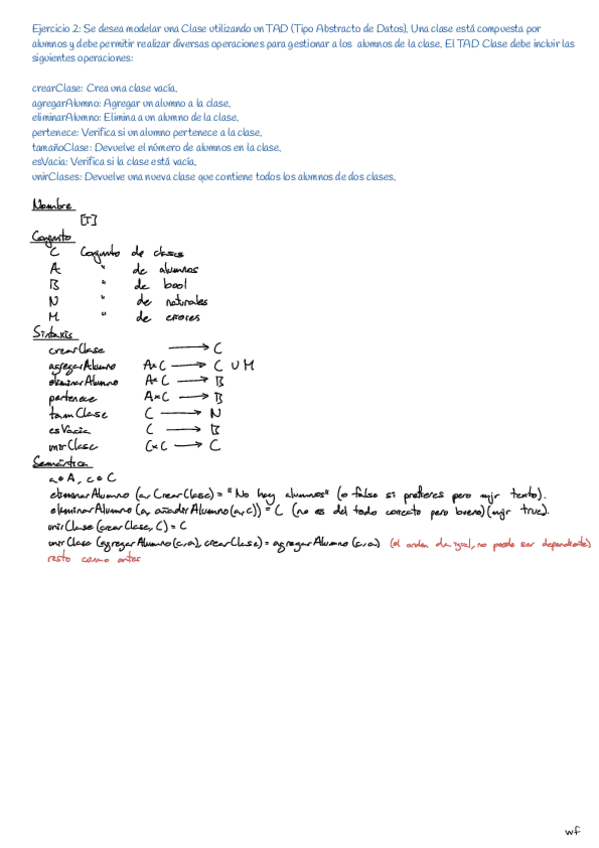 Ejercicio 2: Se desea modelar una Clase utilizando un TAD (Tipo Abstracto de Datos). Una clase está compuesta por
alumnos y debe permitir realizar diversas operaciones para gestionar a los alumnos de la clase. El TAD Clase debe incluir las
siguientes operaciones:
crearClase: Crea una clase vacía.
agregarAlumno: Agregar un alumno a la clase.
eliminarAlumno: Elimina a un alumno de la clase.
pertenece: Verifica si un alumno pertenece a la clase.
tamañoClase: Devuelve el número de alumnos en la clase.
esVacia: Verifica si la clase está vacía.
unirClases: Devuelve una nueva clase que contiene todos los alumnos de dos clases.
Nombre
[T]
Conjunto
C Conjunto de clases
A " de alumnos
B " de bool
N " de naturales
M " de errores
Sintaxis
crearClase → C
agregarAlumno A×C → C ∪ M
eliminarAlumno A×C → B
pertenece A×C → B
tamClase C → N
esVacia C → B
unirClase C×C → C
Semántica
a ∈ A, c ∈ C
eliminarAlumno (a, CrearClase) = "No hay alumnos" (o false si prefieres pero mejr texto).
eliminarAlumno (a, añadirAlumno(a,c)) = C (no es del todo correcto pero bueno) (mjr true).
unirClase (crearClase, C) = C
unirClase (agregarAlumno(c,a), crearClase) = agregarAlumno (c,a) (el orden da igual, no puede ser dependiente)
resto como antes
wf